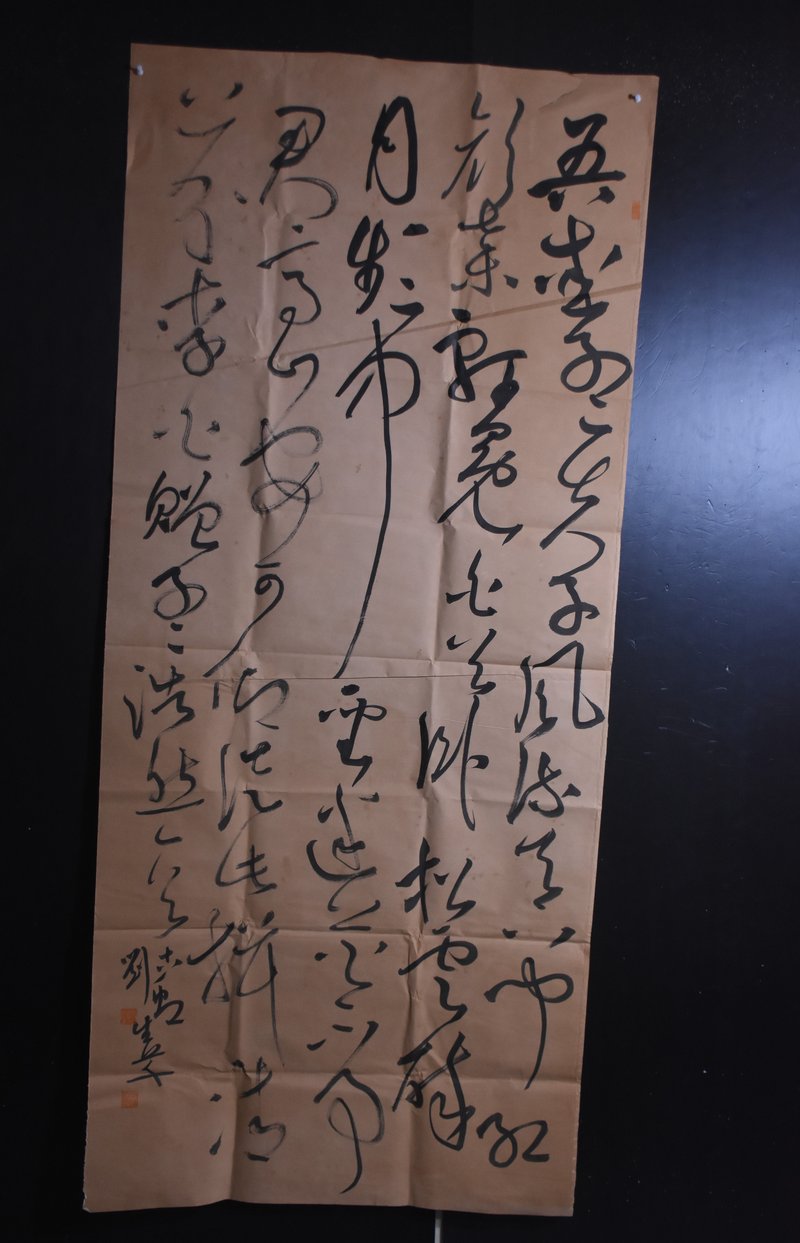 吾愛孟夫子風流天下聞紅
顏棄軒冕白首卧松雲醉
月頻中聖迷花不事
君高山安可仰徒此揖清
芬李白贈孟浩然
劉